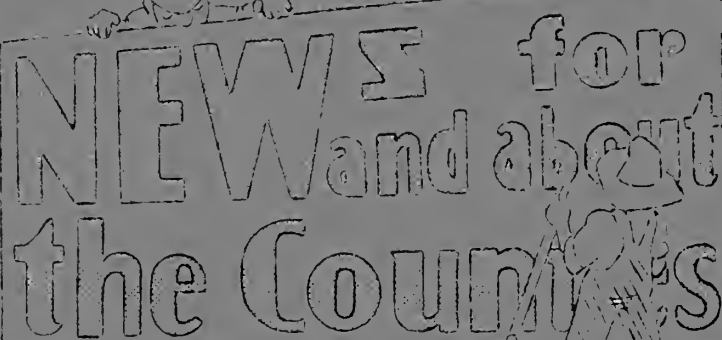 NEWΣ for
and about
the Counties